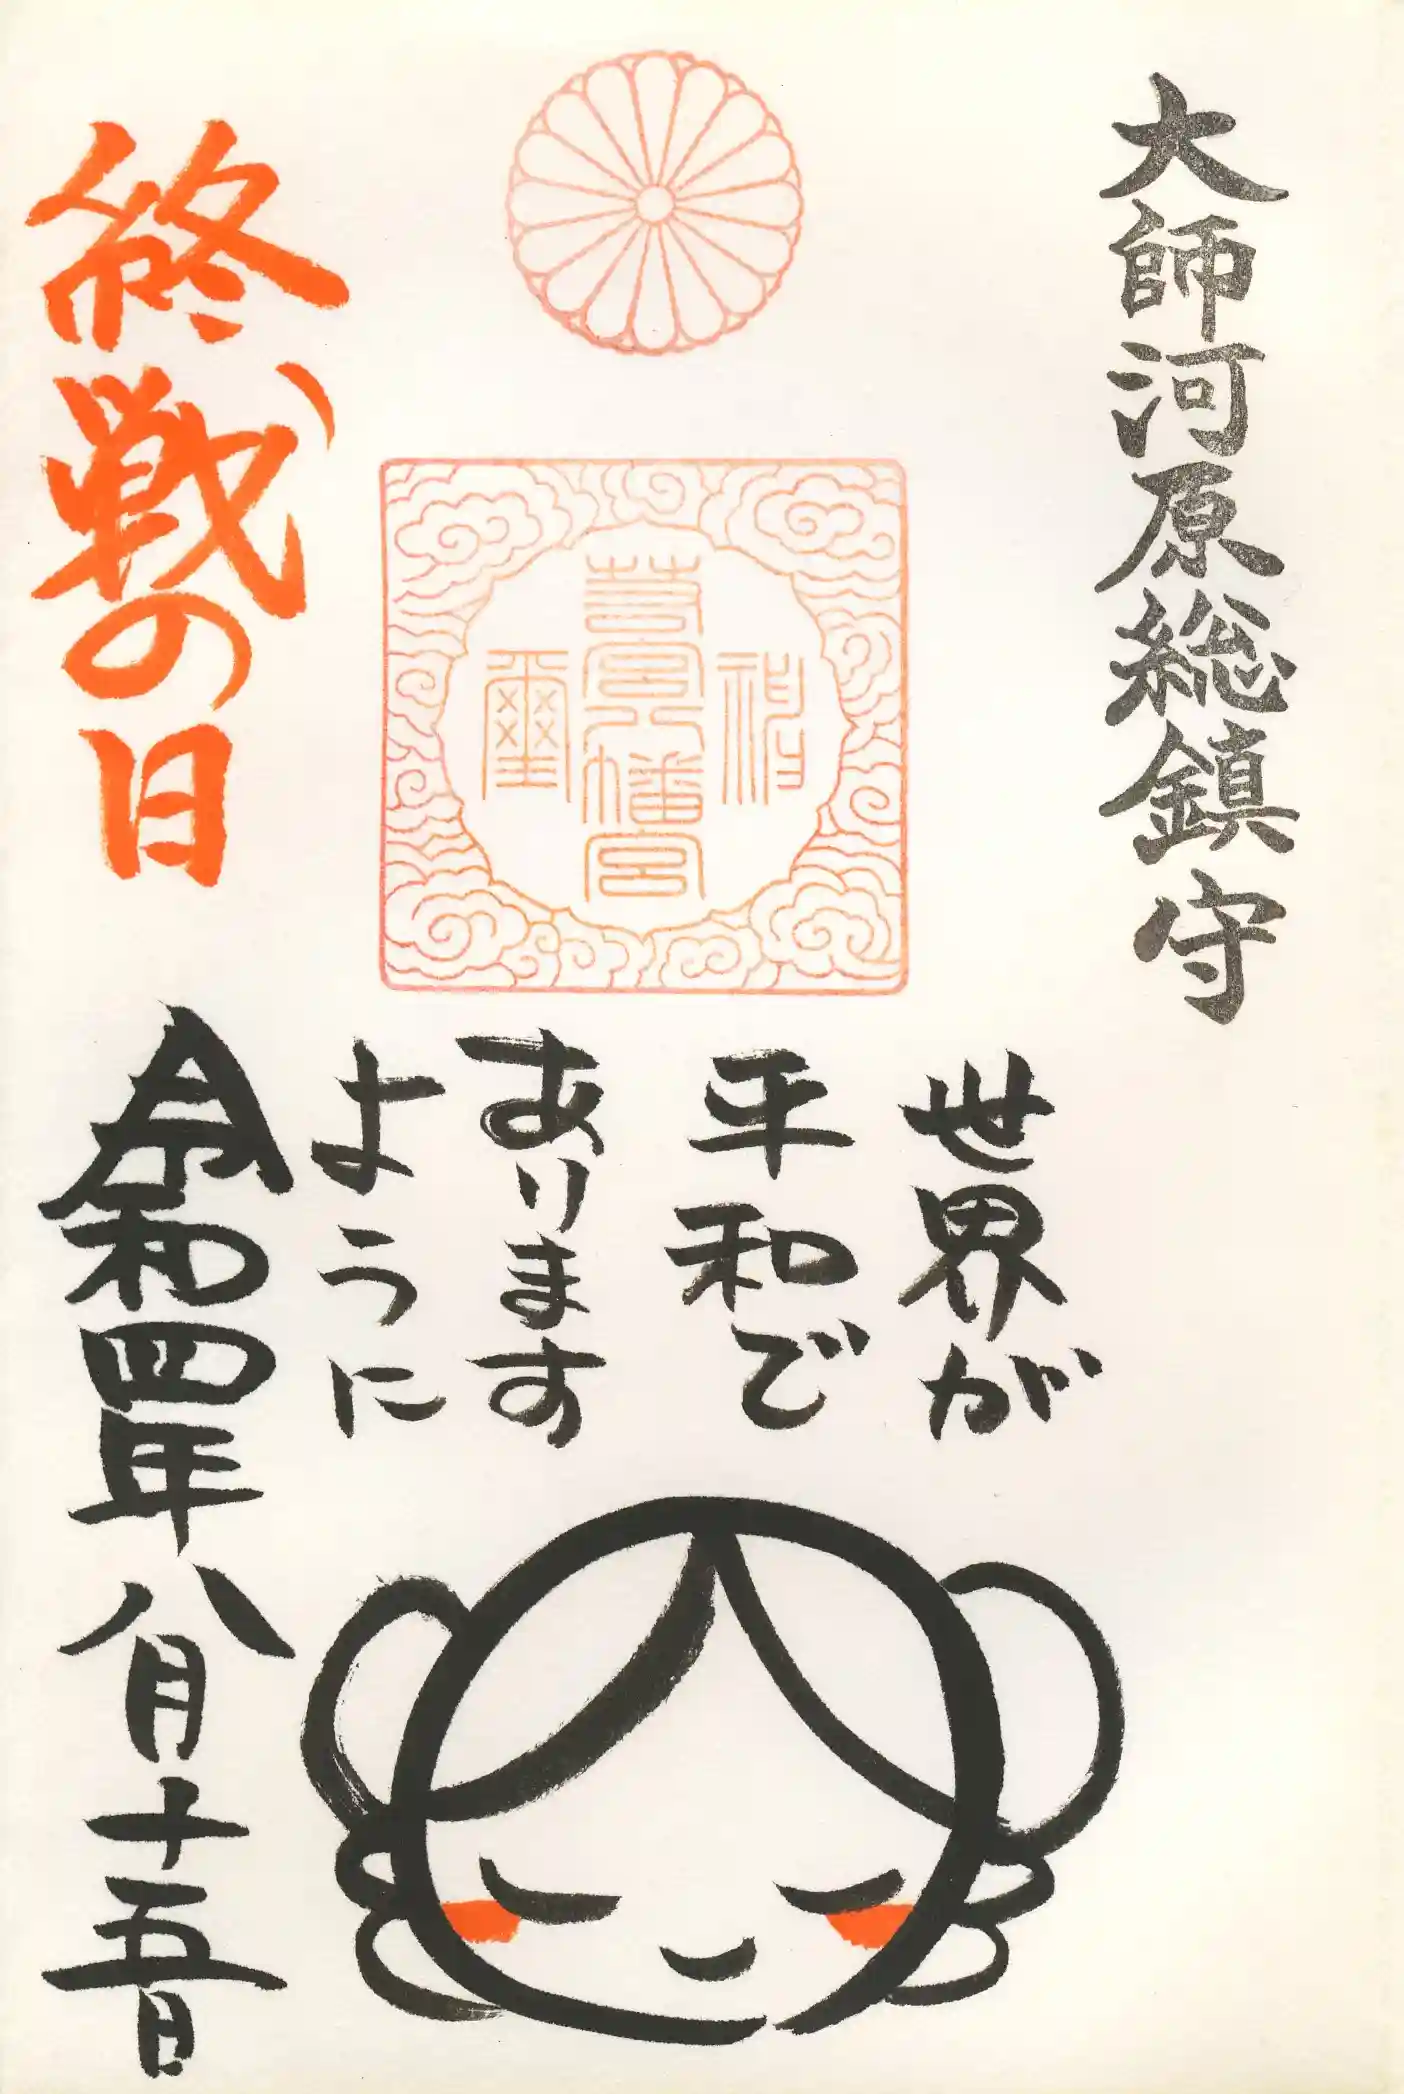 大師河原総鎮守
若宮八幡宮
世界が
平和で
あります
ように
終戦の日
令和四年八月十五日